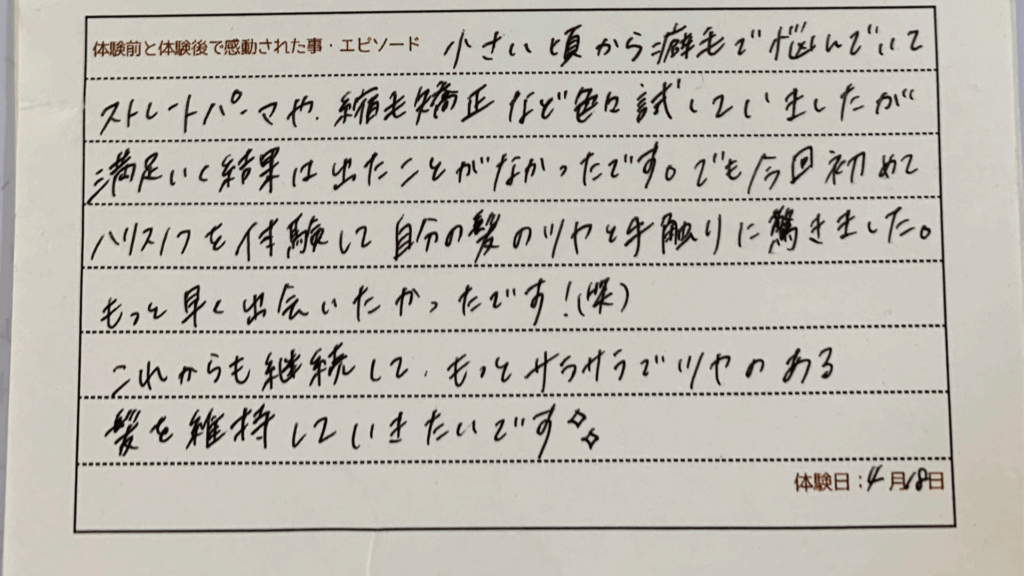 体験前と体験後で感動された事・エピソード 小さい頃から癖毛で悩んでいて
ストレートパーマや、縮毛矯正など色々試していましたが
満足いく結果は出たことがなかったです。でも今回初めて
ハリスノフを体験して自分の髪のツヤと手触りに驚きました。
もっと早く出会いたかったです!(笑)
これからも継続して、もっとサラサラでツヤのある
髪を維持していきたいです✧✧
体験日:4月18日